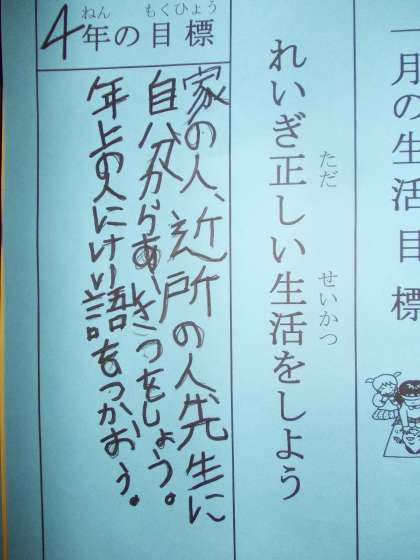 一月の生活目標
れいぎ正しい生活をしよう
ただ
せいかつ
4年の目標
ねん
もくひょう
家の人、近所の人先生に
自分からあいさつをしょう。
年上の人にけい語をつかおう。